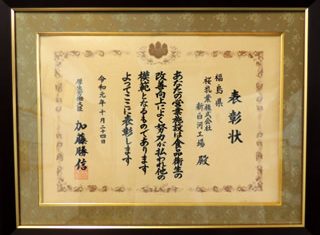 表彰状
福島県
桜乳業株式会社
新白河工場 殿
あなたの営業施設は食品衛生の
改善向上によく努力が払われ他の
模範となるものであります
よってここに表彰します
令和元年十月二十四日
厚生労働大臣 加藤勝信